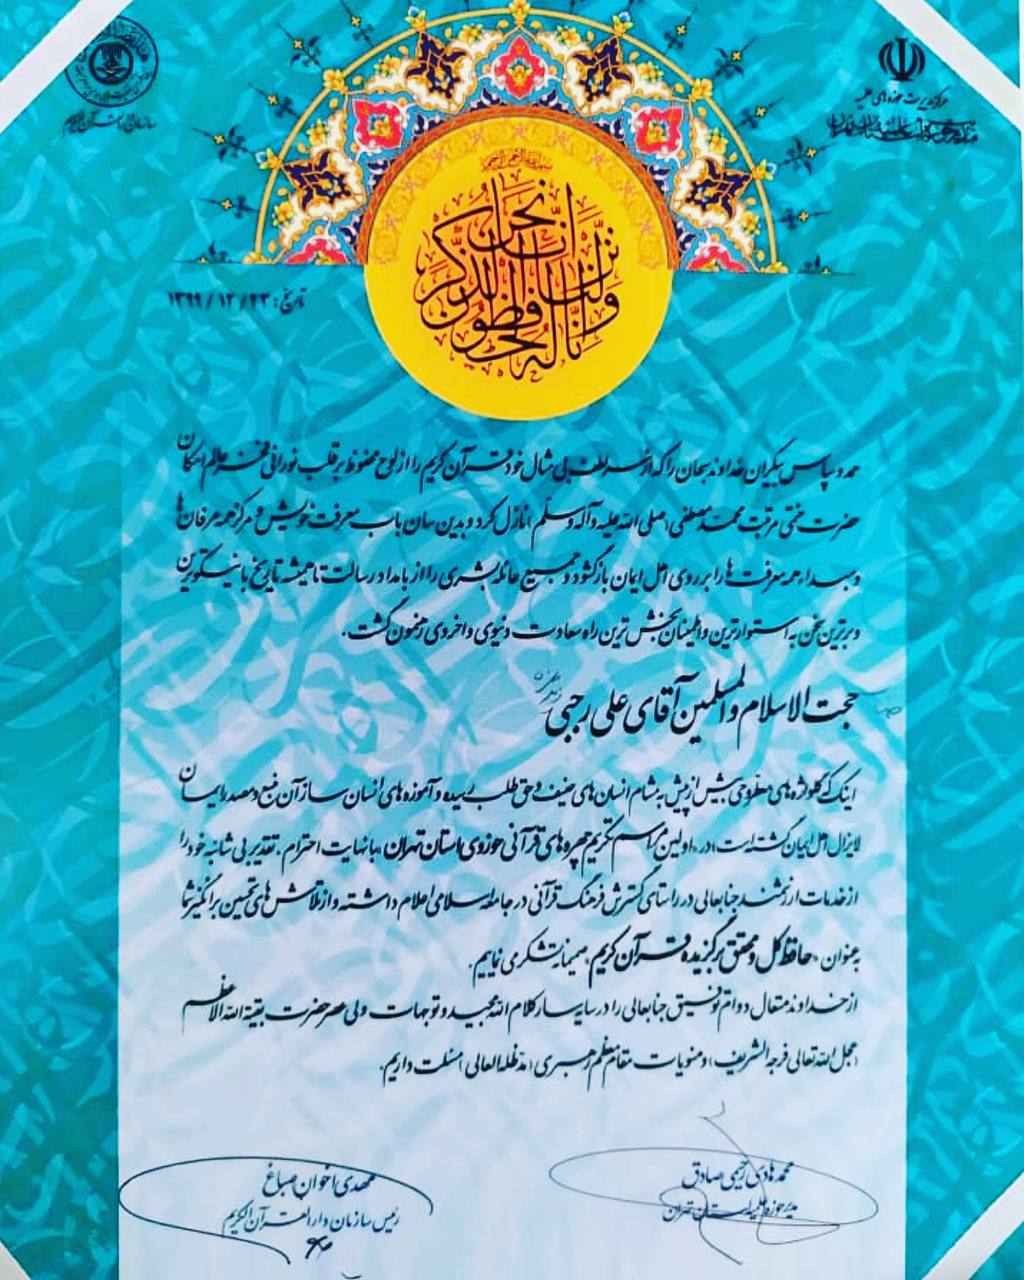 مرکز مدیریت حوزه های علمیه
سازمان دارالقرآن الکریم
بسم الله الرحمن الرحیم
انا نحن نزلنا الذکر و انا له لحافظون
تاریخ: ۱۳۹۹/۱۲/۲۳
حمد و سپاس بیکران خداوند سبحان را که از سر لطف بی مثال خود قرآن کریم را از لوح محفوظ بر قلب نورانی فخر عالم امکان
حضرت ختمی مرتبت محمد مصطفی (صلی الله علیه وآله وسلم) نازل کرد و بدین سان باب معرفت خویش و مرکز همه عرفان ها
و مبداء همه معرفت ها را بر روی اهل ایمان بازگشود و جمیع عائله بشری را از بامداد رسالت تا همیشه تاریخ با نیکوترین
و برترین سخن به استوارترین و اطمینان بخش ترین راه سعادت دنیوی و اخروی رهنمون گشت.
حجت الاسلام والمسلمین آقای علی رجبی
اینک که گلواژه های وحی بیش از پیش به مشام انسان های حنیف و حق طلب رسیده و آموزه های انسان ساز آن منبع و مصدر ایمان
لایزال اهل ایمان گشته است؛ در «اولین مراسم تکریم چهره های قرآنی حوزوی استان تهران» با نهایت احترام، تقدیر بی شائبه خود را
از خدمات ارزشمند جنابعالی در راستای گسترش فرهنگ قرآنی در جامعه اسلامی اعلام داشته و از تلاش های تحسین برانگیز شما
به عنوان «حافظ کل و محقق برگزیده قرآن کریم» صمیمانه تشکر می نماییم.
از خداوند متعال دوام توفیق جنابعالی را در سایه سار کلام الله مجید و توجهات ولی عصر حضرت بقیة الله الاعظم
(عجل الله تعالی فرجه الشریف) و منویات مقام معظم رهبری (مدظله العالی) مسئلت داریم.
محمدهادی رحیمی صادق
مدیر حوزه علمیه استان تهران
مهدی اخوان صباغ
رئیس سازمان دارالقرآن الکریم